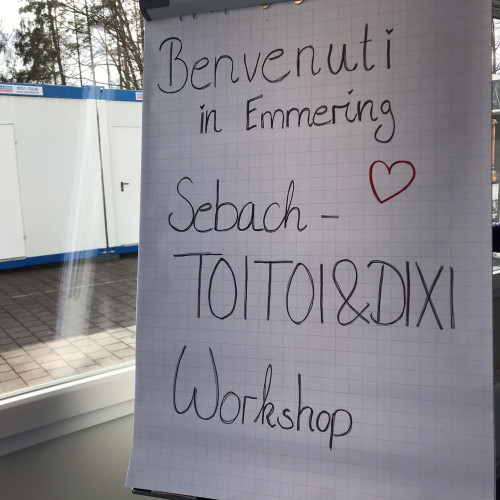 Benvenuti
in Emmering
Sebach -
TOITOI&DIXI
Workshop